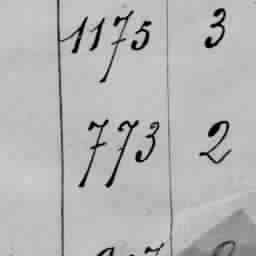 1175 3
773 2